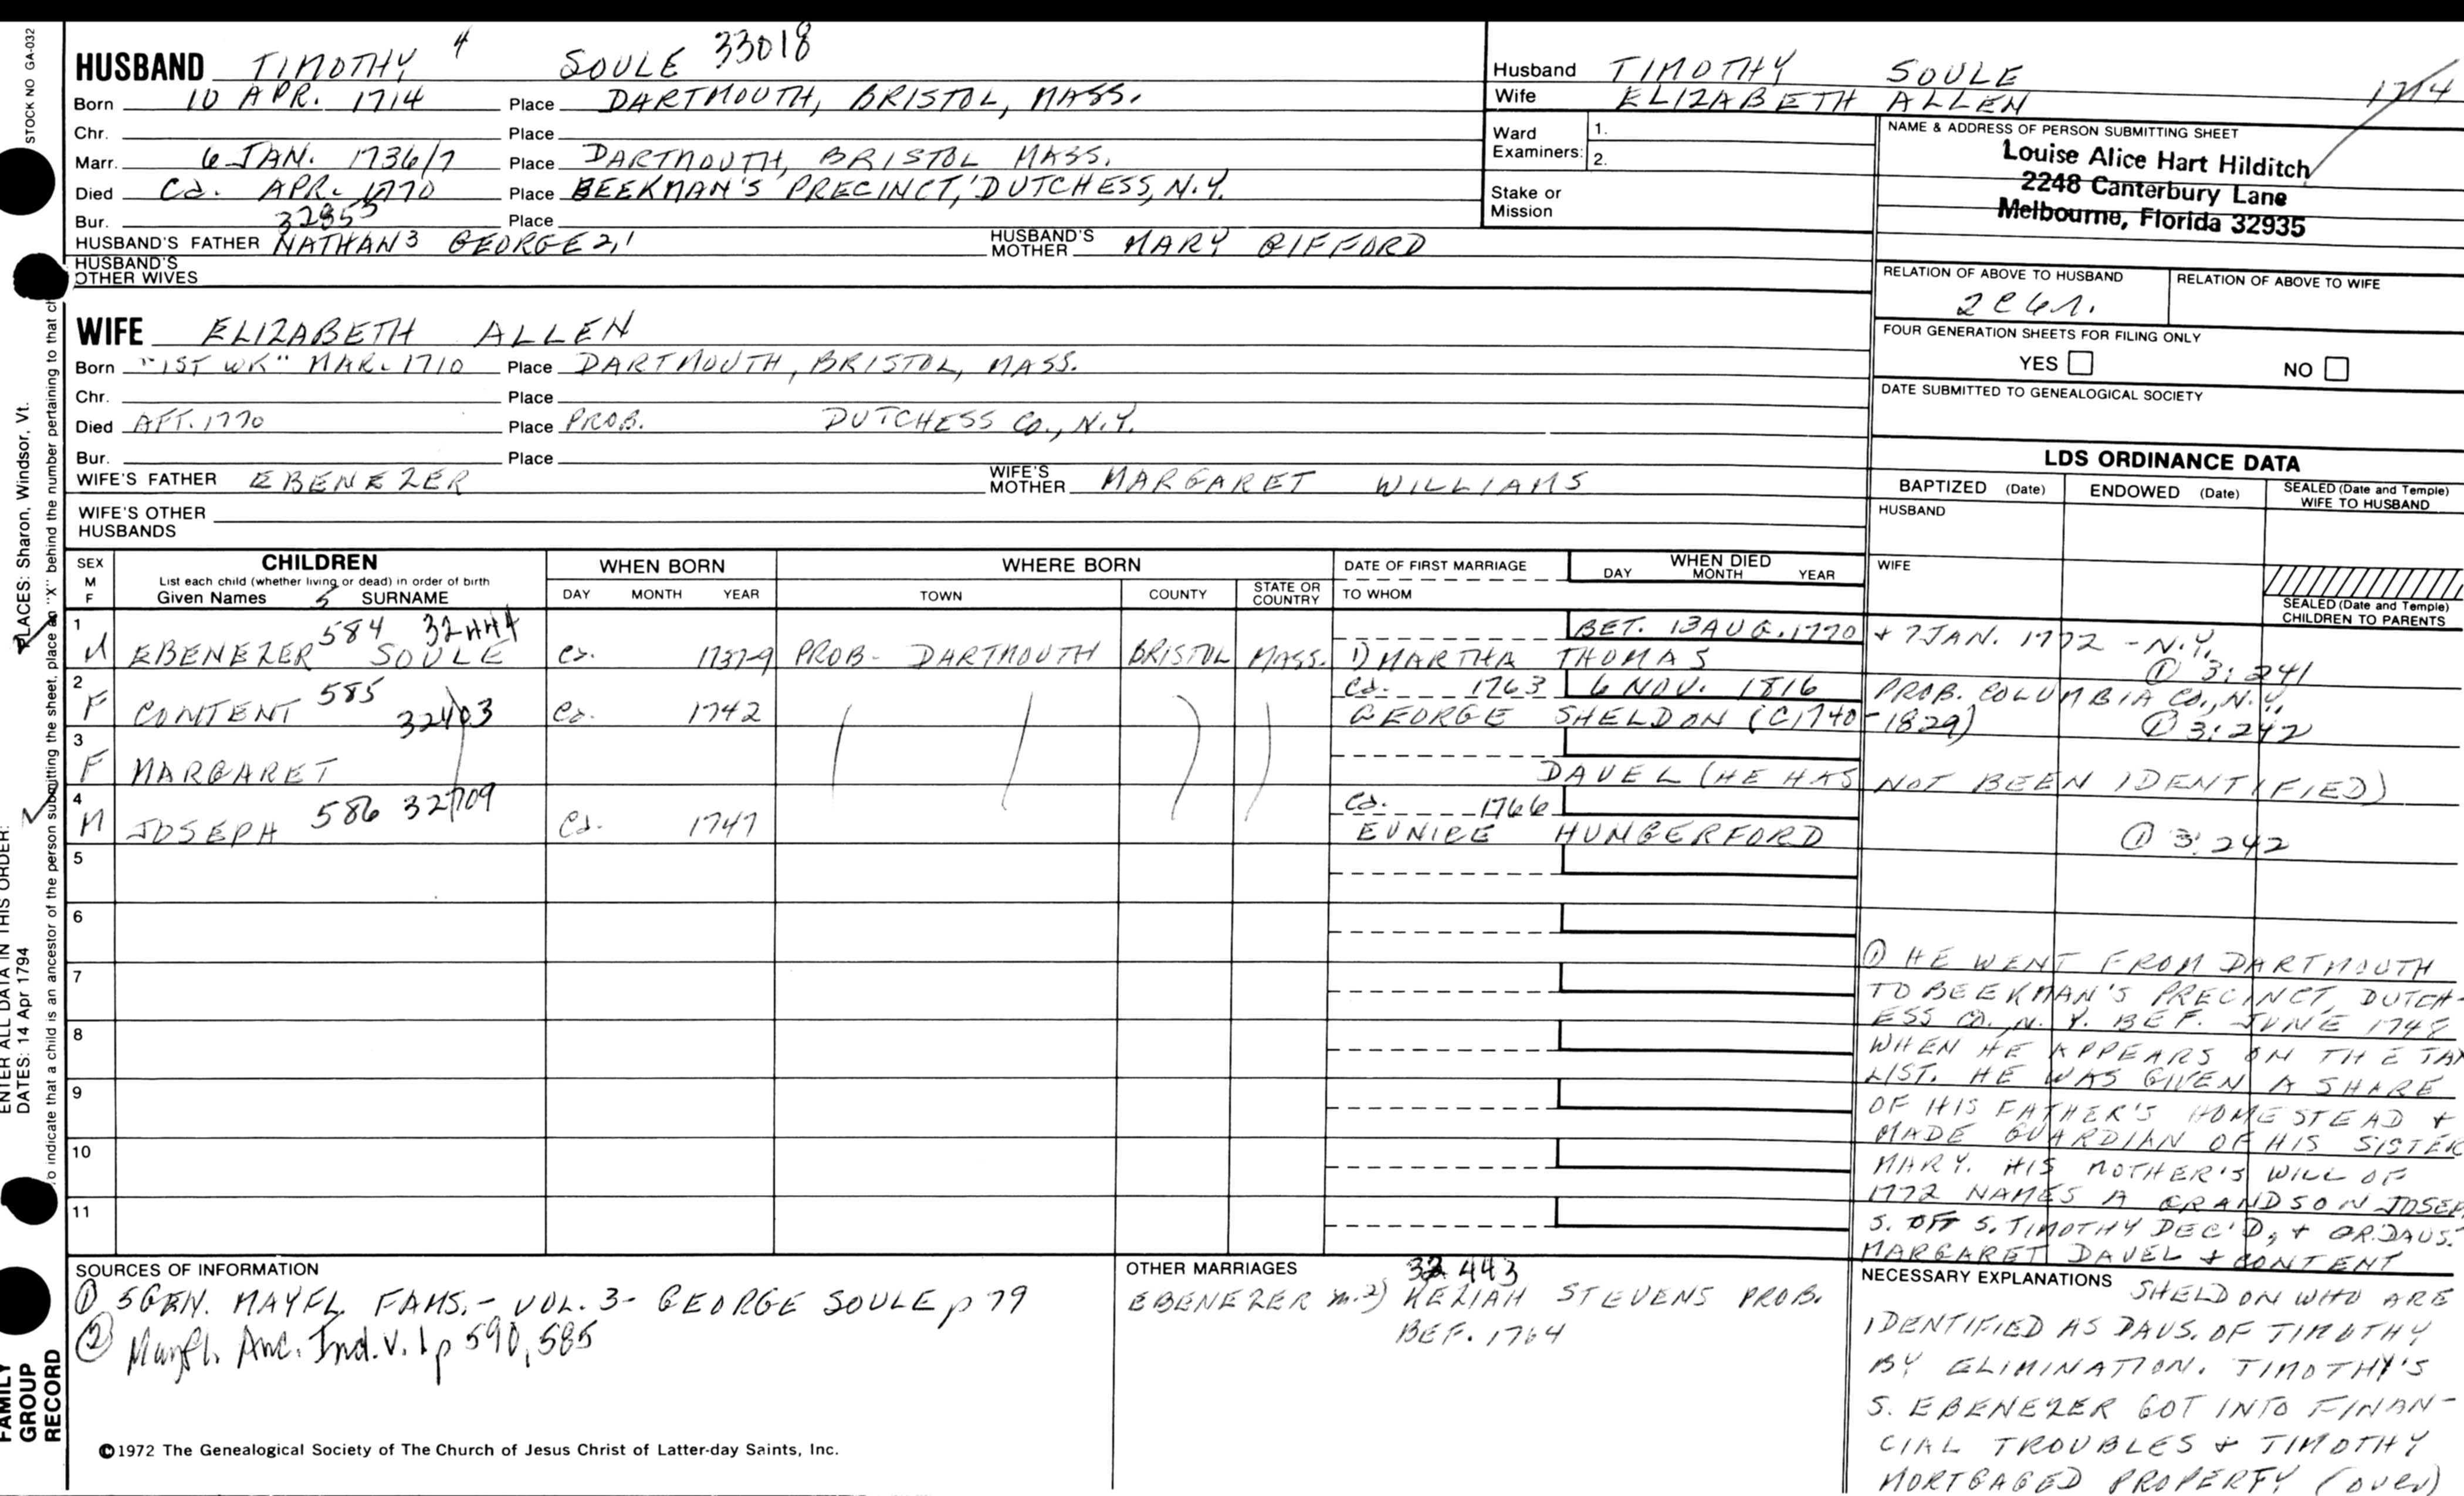 STOCK NO GA-032
HUSBAND TIMOTHY 4 SOULE 33018
Born 10 APR. 1714 Place DARTMOUTH, BRISTOL, MASS.
Chr. Place
Marr. 6 JAN. 1736/7 Place DARTMOUTH, BRISTOL MASS.
Died Ca. APR. 1770 Place BEEKMAN'S PRECINCT, DUTCHESS, N.Y.
Bur. 32855 Place
HUSBAND'S FATHER NATHAN 3 GEORGE 2,1 HUSBAND'S MOTHER MARY GIFFORD
HUSBAND'S OTHER WIVES
WIFE ELIZABETH ALLEN
Born "1ST WK" MAR. 1710 Place DARTMOUTH, BRISTOL, MASS.
Chr. Place
Died AFT. 1770 Place PROB. DUTCHESS CO., N.Y.
Bur. Place
WIFE'S FATHER EBENEZER WIFE'S MOTHER MARGARET WILLIAMS
WIFE'S OTHER HUSBANDS
Husband TIMOTHY SOULE 1714
Wife ELIZABETH ALLEN
Ward Examiners: 1.
2.
Stake or Mission
NAME & ADDRESS OF PERSON SUBMITTING SHEET
Louise Alice Hart Hilditch
2248 Canterbury Lane
Melbourne, Florida 32935
RELATION OF ABOVE TO HUSBAND RELATION OF ABOVE TO WIFE
FOUR GENERATION SHEETS FOR FILING ONLY
YES NO
DATE SUBMITTED TO GENEALOGICAL SOCIETY
LDS ORDINANCE DATA
BAPTIZED (Date) ENDOWED (Date) SEALED (Date and Temple) WIFE TO HUSBAND
HUSBAND
WIFE
SEALED (Date and Temple) CHILDREN TO PARENTS
SEX M F CHILDREN WHEN BORN WHERE BORN DATE OF FIRST MARRIAGE WHEN DIED
List each child (whether living or dead) in order of birth
Given Names 5 SURNAME DAY MONTH YEAR TOWN COUNTY STATE OR COUNTRY TO WHOM DAY MONTH YEAR
1 584 32444 BET. 13 AUG. 1770 + 7 JAN. 1772 - N.Y.
M EBENEZER SOULE Ca. 1737-9 PROB- DARTMOUTH BRISTOL MASS. 1) MARTHA THOMAS ① 3:241
2 585 Ca. 1763 6 NOV. 1816 PROB. COLUMBIA CO., N.Y.
F CONTENT 32403 Ca. 1742 GEORGE SHELDON (C1740-1829) ① 3:242
3
F MARGARET DAVEL (HE HAS NOT BEEN IDENTIFIED)
4 586 32709 Ca. 1766
M JOSEPH Ca. 1747 EUNICE HUNGERFORD ① 3:242
5
6
7
8
9
10
11
① HE WENT FROM DARTMOUTH
TO BEEKMAN'S PRECINCT, DUTCH-
ESS CO., N.Y. BEF. JUNE 1748
WHEN HE APPEARS ON THE TAX
LIST. HE WAS GIVEN A SHARE
OF HIS FATHER'S HOMESTEAD +
MADE GUARDIAN OF HIS SISTER
MARY. HIS MOTHER'S WILL OF
1772 NAMES A GRANDSON JOSEPH
S. OF S. TIMOTHY DEC'D, + GR.DAUS.
MARGARET DAVEL + CONTENT
NECESSARY EXPLANATIONS SHELDON WHO ARE
IDENTIFIED AS DAUS. OF TIMOTHY
BY ELIMINATION. TIMOTHY'S
S. EBENEZER GOT INTO FINAN-
CIAL TROUBLES + TIMOTHY
MORTGAGED PROPERTY (over)
SOURCES OF INFORMATION
① 5 GEN. MAYFL. FAMS. - VOL. 3 - GEORGE SOULE p 79
② Mayfl. Anc. Ind. V. 1 p 590, 585
OTHER MARRIAGES 32443
EBENEZER m. 2) KEZIAH STEVENS PROB.
BEF. 1764
©1972 The Genealogical Society of The Church of Jesus Christ of Latter-day Saints, Inc.
FAMILY GROUP RECORD
ENTER ALL DATA IN THIS ORDER:
DATES: 14 Apr 1794
PLACES: Sharon, Windsor, Vt.
To indicate that a child is an ancestor of the person submitting the sheet, place an "X" behind the number pertaining to that ch